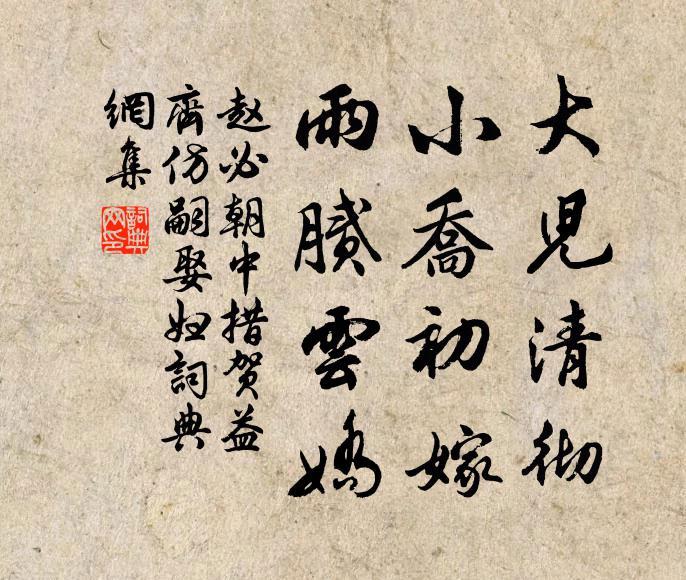 大児清彻
小喬初嫁
雨膩雲嬌
赵必朝中措贺益
齋仿嗣娶妲詞典
網集
詞典
网印